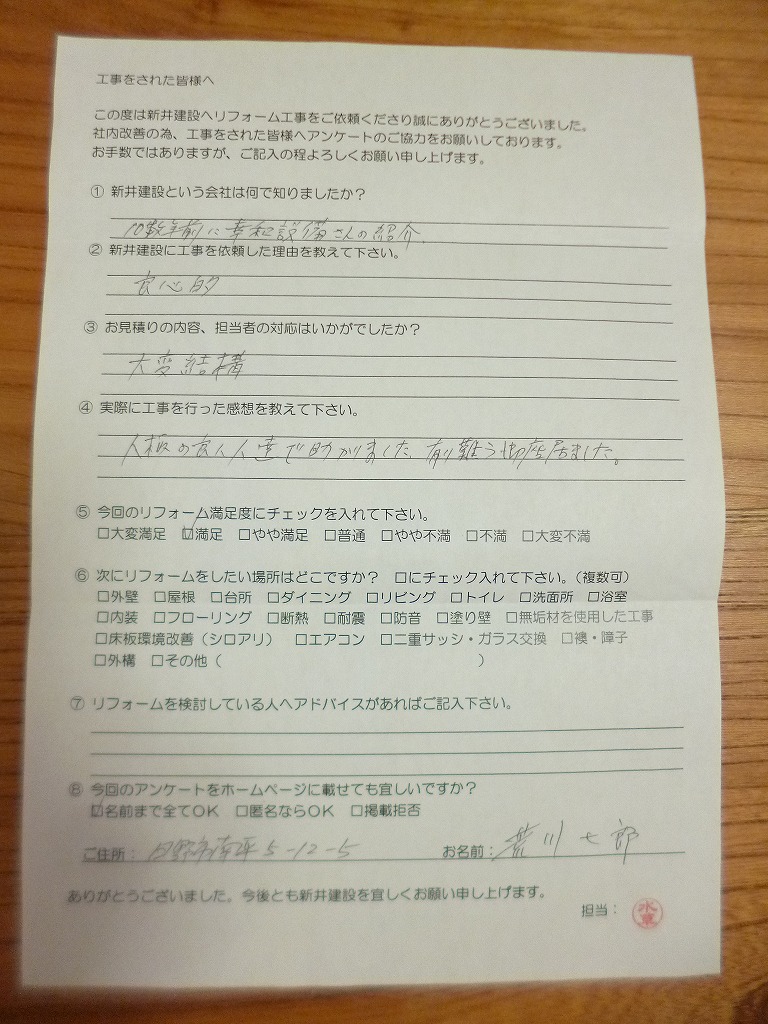 工事をされた皆様へ
この度は新井建設へリフォーム工事をご依頼くださり誠にありがとうございました。
社内改善の為、工事をされた皆様へアンケートのご協力をお願いしております。
お手数ではありますが、ご記入の程よろしくお願い申し上げます。
① 新井建設という会社は何で知りましたか?
10数年前に幸和設備さんの紹介
② 新井建設に工事を依頼した理由を教えて下さい。
良心的
③ お見積りの内容、担当者の対応はいかがでしたか?
大変結構
④ 実際に工事を行った感想を教えて下さい。
人柄の良い人達で助かりました。有難う御座居ました。
⑤ 今回のリフォーム満足度にチェックを入れて下さい。
□大変満足 ☑満足 □やや満足 □普通 □やや不満 □不満 □大変不満
⑥ 次にリフォームをしたい場所はどこですか? □にチェック入れて下さい。(複数可)
□外壁 □屋根 □台所 □ダイニング □リビング □トイレ □洗面所 □浴室
□内装 □フローリング □断熱 □耐震 □防音 □塗り壁 □無垢材を使用した工事
□床板環境改善(シロアリ) □エアコン □二重サッシ・ガラス交換 □襖・障子
□外構 □その他( )
⑦ リフォームを検討している人へアドバイスがあればご記入下さい。
⑧ 今回のアンケートをホームページに載せても宜しいですか?
☑名前まで全てOK □匿名ならOK □掲載拒否
ご住所: 日野市南平5-12-5 お名前: 荒川七郎
ありがとうございました。今後とも新井建設を宜しくお願い申し上げます。
担当: